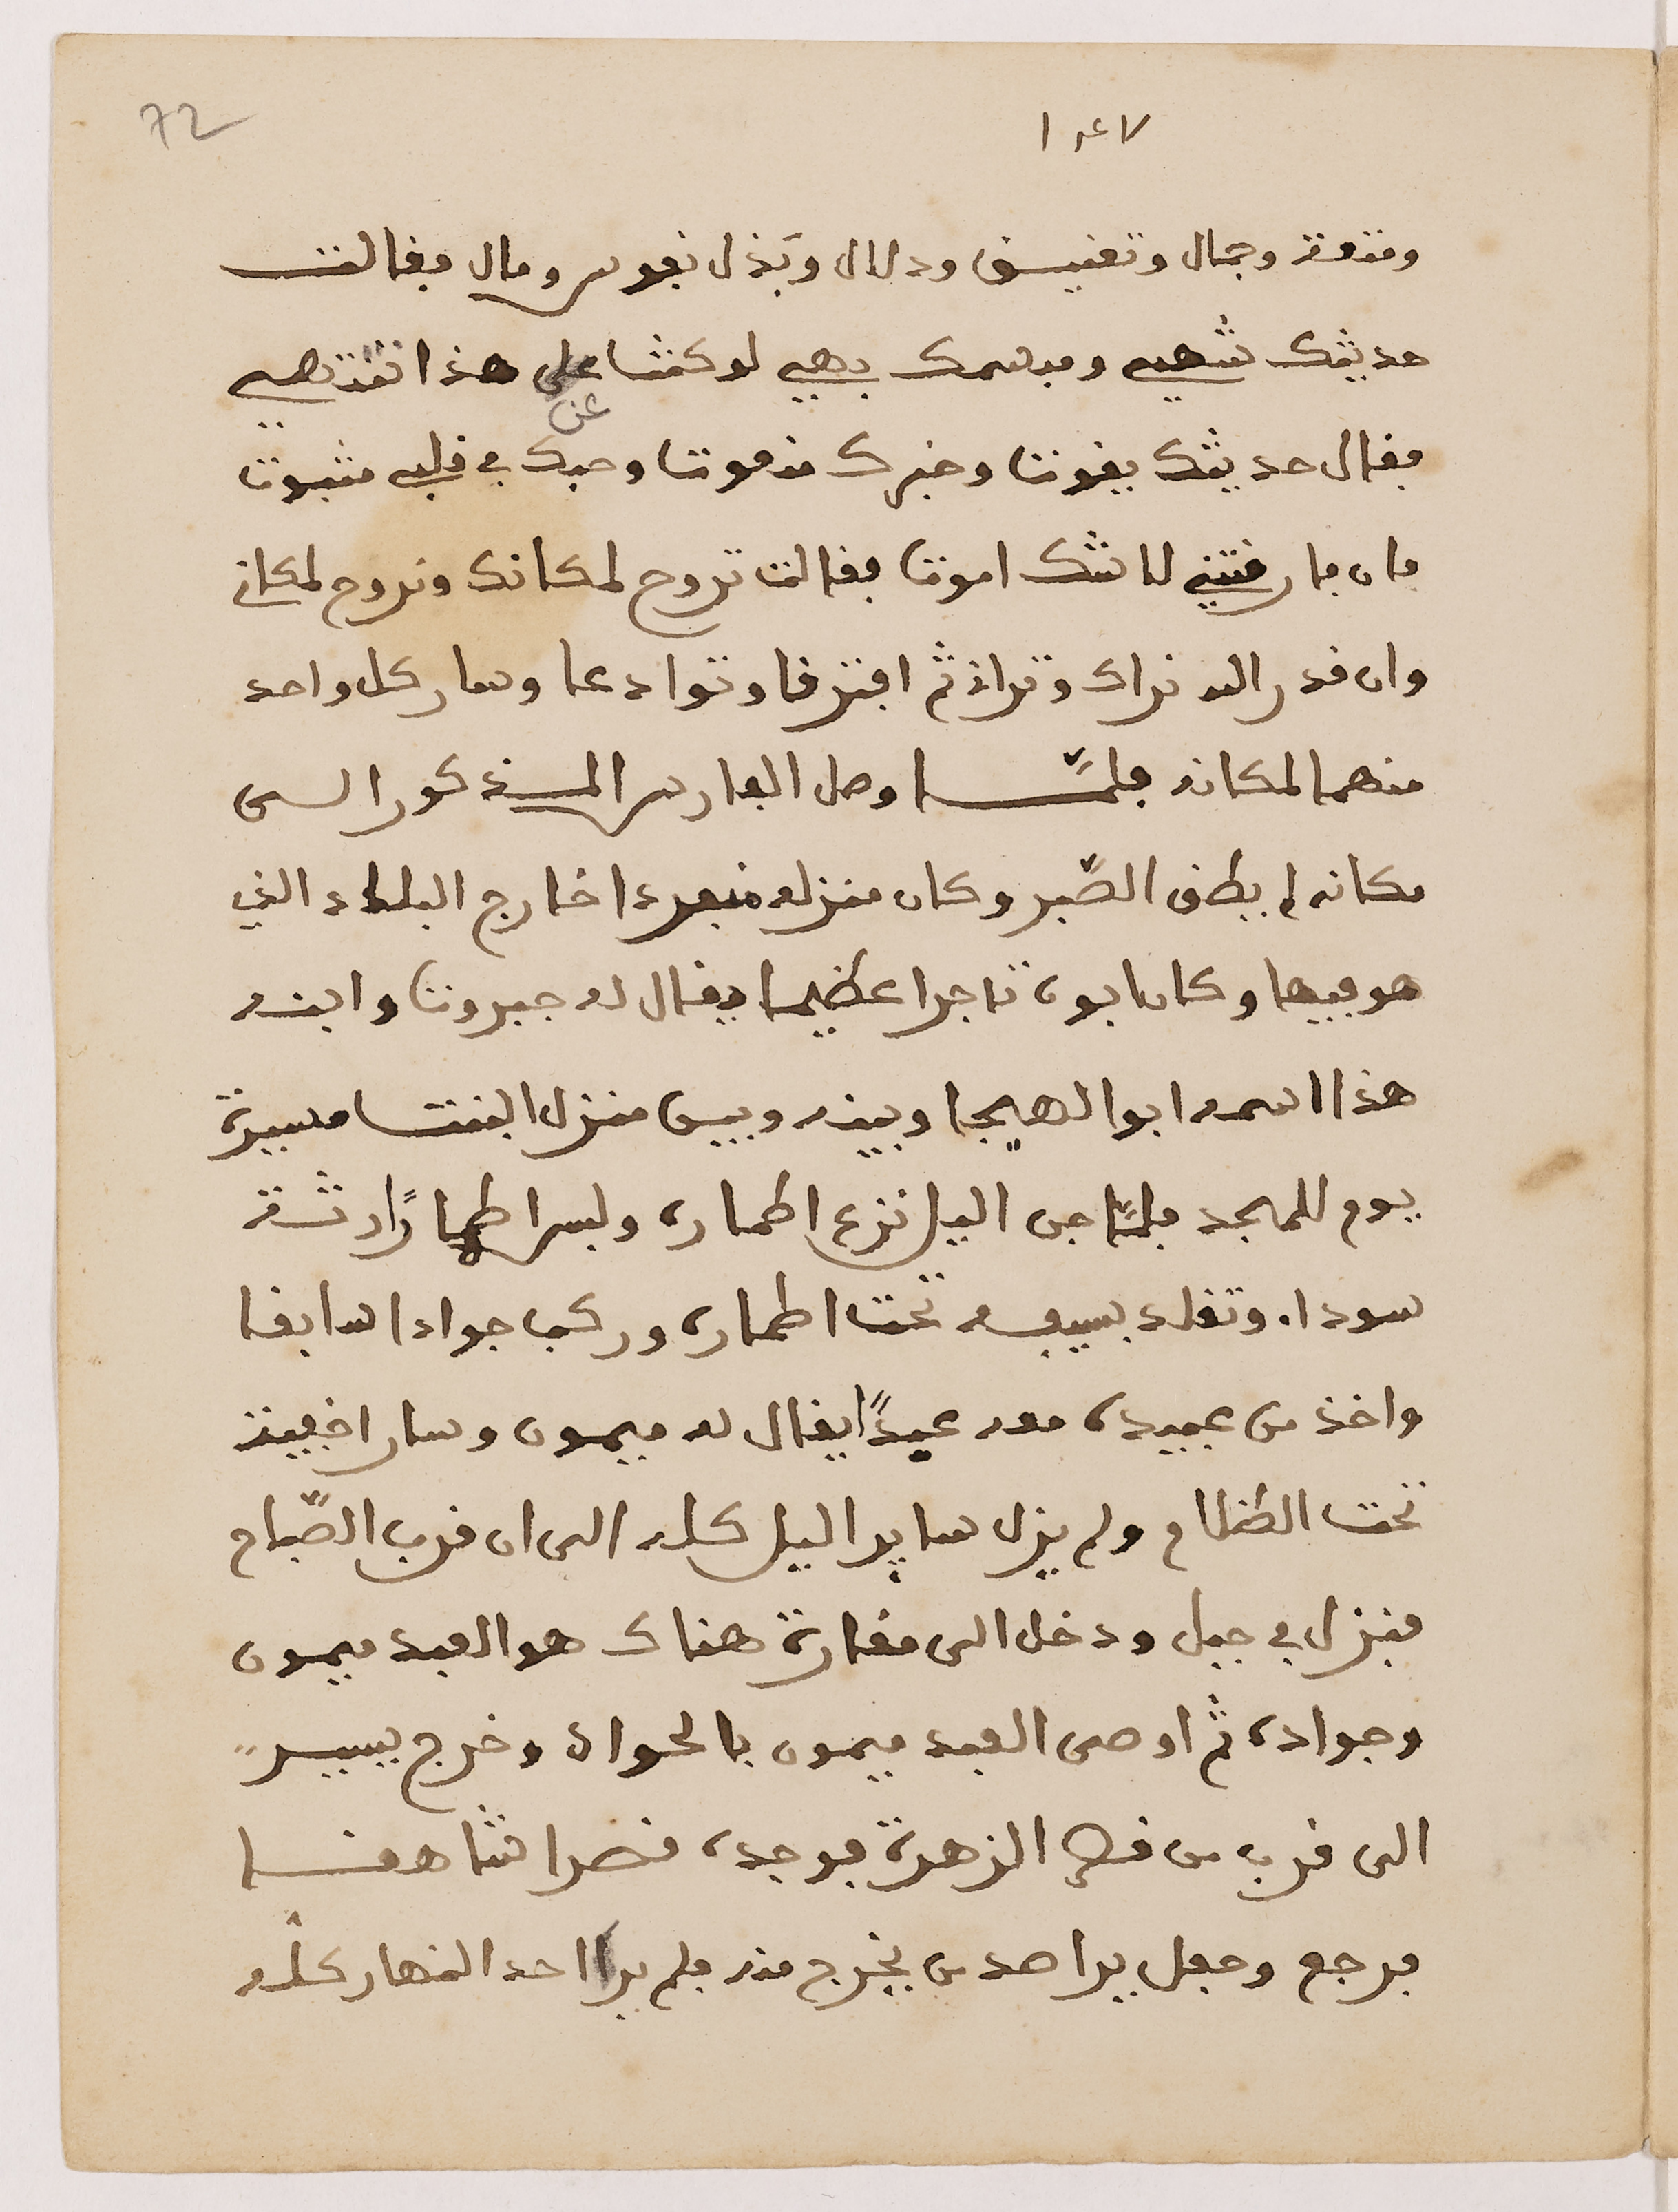 72
١٤٧
ومتعة وجمال وتغنيق ودلال وبَذل نفوس ومال فقالت
حديثك شهي ومبسمك بهي لو كنت على هذا تنتهي
عن
فقال حديثك يقوت وخبرك منعوت وحبك في قلبي مثبوت
فان فارقتني لا شك اموت فقالت تروح لمكانك ونروح لمكاني
وان قدر الله نراك وتراني ثم افترقا وتوادعا وسار كل واحد
منهما لمكانه فلمّا وصل الفارس المذكور الى
مكانه لم يطق الصّبر وكان منزله منفردا خارج البلاد الذي
هو فيها وكان ابوه تاجرا عظيما يقال له جبروت وابنه
هذا اسمه ابو الهيجا وبينه وبين منزل البنت مسيرة
يوم للمجد فلمّا جن اليل نزع اطماره ولبس اطمارًا رثة
سوداء وتقلد بسيفه تحت اطماره وركب جوادا سابقا
واخذ من عبيده معه عبدًا يقال له ميمون وسار اخفية
تحت الظلام ولم يزل ساير اليل كله الى ان قرب الصّباح
فنزل في جبل ودخل الى مغارة هناك هو العبد ميمون
وجواده ثم اوصى العبد ميمون بالجواد وخرج يسير
الى قرب من قصر الزهرة فوجده قصرا شاهقا
فرجع وجعل يراصد من يخرج منه فلم ير احد النهار كله